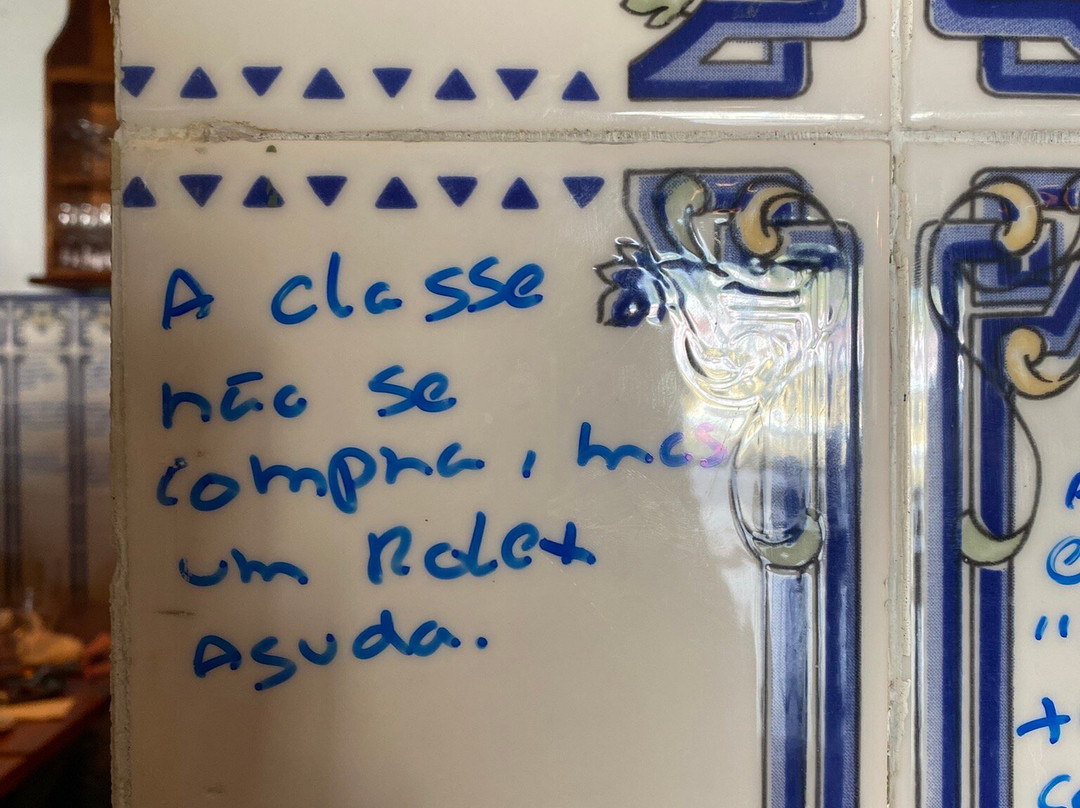 A classe
não se
compra, mas
um Rolex
Asuda.